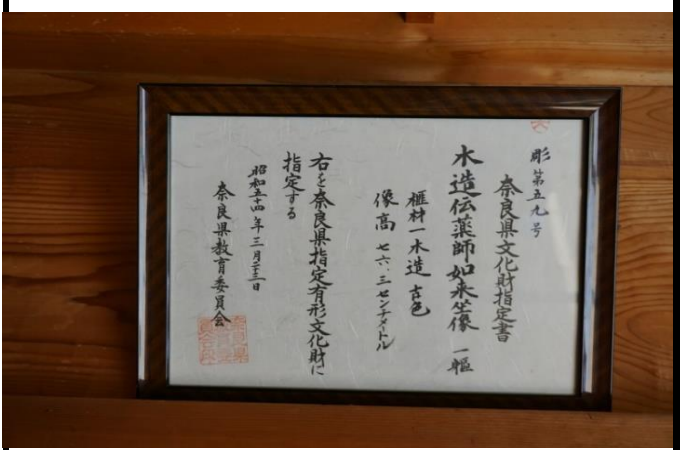 彫第五九号
奈良県文化財指定書
木造伝薬師如来坐像 一軀
榧材一木造 古色
像高 七六.三センチメートル
右を奈良県指定有形文化財に
指定する
昭和五十四年三月二十三日
奈良県教育委員会